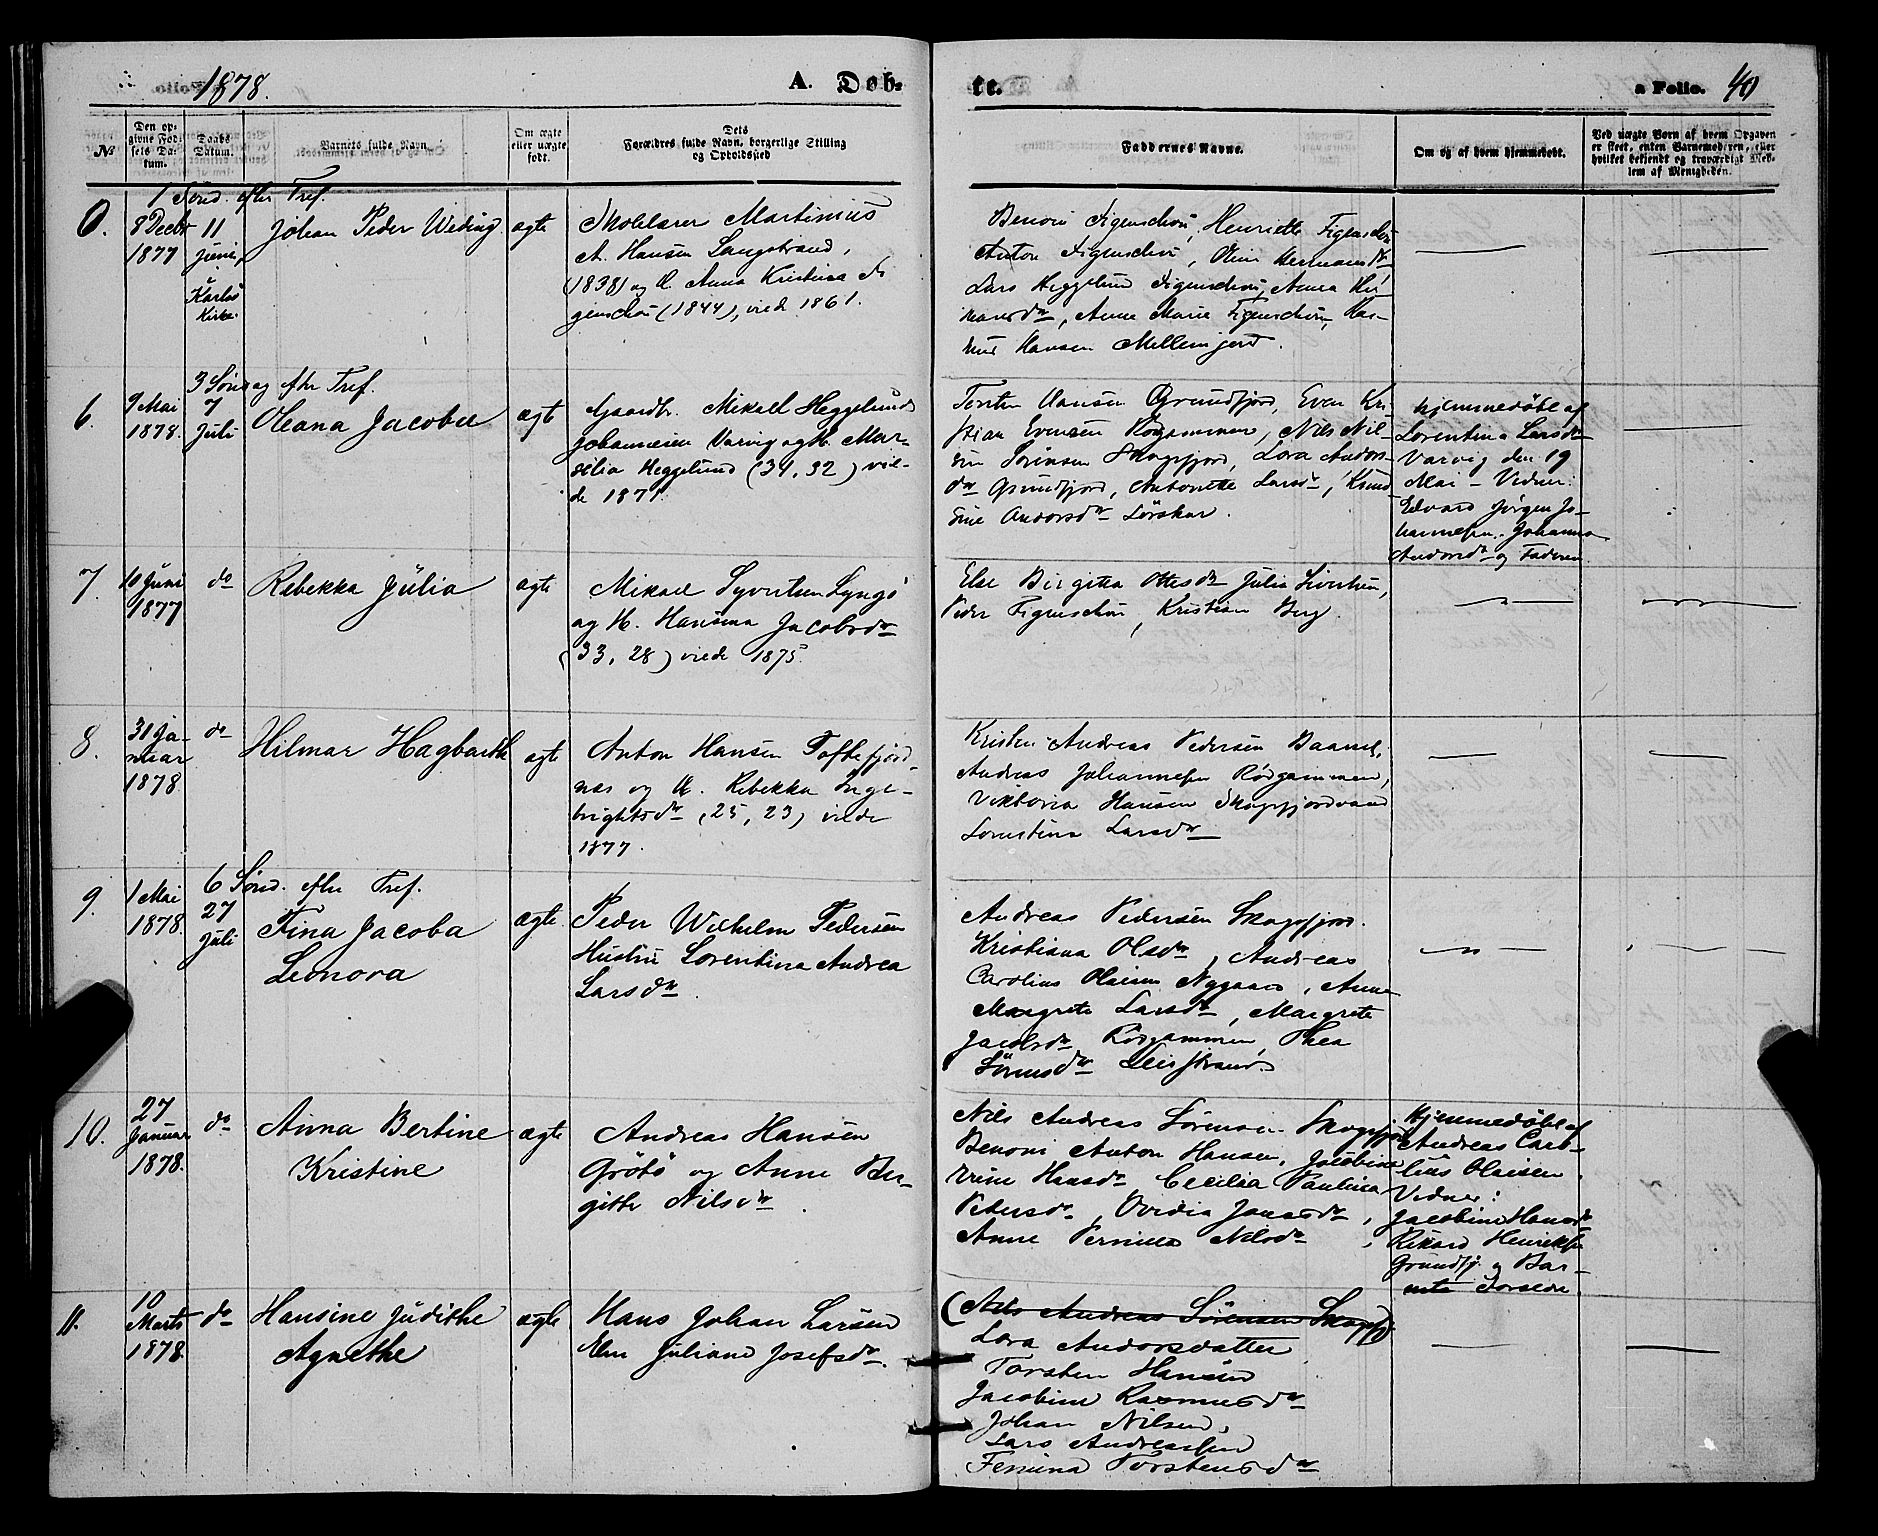 1878.
A. Døb-
te.
a Folio. 40
№
Den op-
givne Fød-
sels Da-
tum.
Daabs
Datum.
Barnets fulde Navn.
Om ægte
eller uægte
født.
Dets
Forældres fulde Navn, borgerlige Stilling
og Opholdssted
Faddernes Navne.
Om og af hvem hjemmedøbt.
Ved uægte Børn af hvem Opgaven
er skeet, enten Barnemoderen, eller
hvilket bekjendt og troværdigt Med-
lem af Menigheden.
1 Sønd. efter Tref.
8 Decbr
1877
11
Juni,
i
Karlsö
Kirke.
Johan Peder Weding
ægte
Skolelærer Martinius
A. Hansen Langstrand,
(1838) og H. Anna Kristina Fi
genschou (1844), viede 1861.
Benoni Figenschou, Henriette Figenschou
Anton Figenschou, Oline Hermansdtr
Lars Heggelund Figenschou, Anna Her
mansdtr, Anne Marie Figenschou, Ras-
mus Hansen Mellemjord.
3 Sönd ag efter Tref.
6.
9 Mai
1878.
7
Juli
Oleana Jacoba
ægt
Gaardbr. Mikael Heggelund
Johannesen Varvig og H. Mar-
selia Heggelund (34, 32) vie-
de 1871.
Torsten Hansen Grundfjord, Even Kri-
stian Evensen Rögammen, Nils Nil-
sen Sörensen Skogsfjord, Lora Andors-
dtr Grundfjord, Antonette Larsdtr, Knud
Sine Andorsdtr Lörskar.
Hjemmedöbt af
Lorentina Larsdtr
Varvig den 19
Mai - Vidner:
Edvard Jørgen Jo-
hannesen, Johanna
Andorsdtr og Faderen
7.
10 Juni
1877
do
Rebekka Julia
ægte
Mikael Syvertsen Lyngö
og H. Hansina Jacobsdtr
(33, 28) viede 1875.
Else Birgitta Ottesdtr Julia Sivertsen,
Peder Figenschou, Kristian Berg.
8.
31 Ja-
nuar
1878
do
Hilmar Hagbarth
ægte
Anton Hansen Toftefjord-
næs og H. Rebekka Inge-
brigtsdtr (25, 23) viede
1877.
Kristen Andreas Pedersen Baarnes,
Andreas Johannesen Rödgammen,
Viktoria Hansen Skogsfjordvand
Lorentina Larsdtr
6 Sönd. efter Tref.
9.
1 Mai
1878.
27
Juli
Fina Jacoba
Leonora
ægte
Peder Wilhelm Pedersen
Hustru Lorentina Andrea
Larsdtr.
Andreas Pedersen Skogsfjord.
Kristiana Olsdtr, Andreas
Carolius Olaisen Nygaard, Anne
Margrete Larsdtr, Margrete
Jacobsdtr Rögammen, Thea
Sörensdtr Leirstrand.
10.
27
Januar
1878.
do
Anna Bertine
Kristine
ægte
Andreas Hansen
Grötö og Anne Bir-
gitte Nilsdtr.
Nils Andreas Sörensen Skogsfjord
Benoni Anton Hansen, Jacobine
Hansdtr Cecilia Paulina
Petersdtr, Ovidia Jansdtr,
Anne Pernille Nilsdtr,
Hjemmedöbt af
Andreas Caro-
lius Olaisen.
Vidner:
Jacobine Hansdtr
Rikard Henriksen
Grundfj. og Bar-
nets Forældre
11.
10
Marts
1878.
do
Hansine Judithe
Agnethe
ægte
Hans Johan Larsen
Elen Juliane Josefsdtr.
(Nils Andreas Sörensen Skogsfj)
Lora Andorsdatter
Torsten Hansen
Jacobine Rasmusdtr
Johan Nilsen,
Lars Andreassen
Femina Torstensdtr